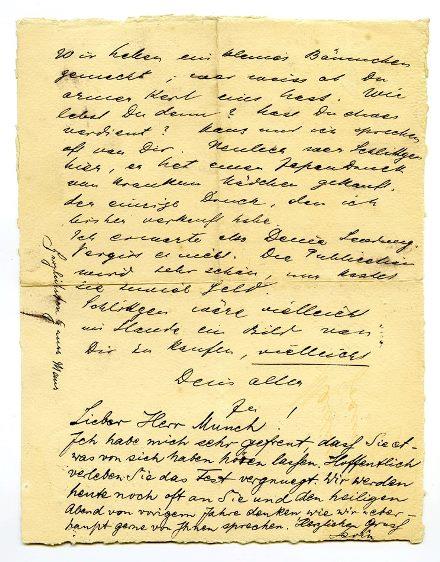 Wir haben ein kleines Bäumchen
gemacht, wer weiss ob Du
armer Kerl eins hast. Wie
lebst Du denn? hast Du etwas
verdient? Haus und wir sprechen
oft von Dir. Neulich war Schlittgen
hier, er hat einen Japandruck
vom kranken Mädchen gekauft.
der einzige Druck, den ich
bisher verkauft habe.
Ich erwarte also Deine Sendung.
Vergiss es nicht. Die Publication
wird sehr schön, nur kostet
sie Geld.
Schlittgen wäre vielleicht
im Stande ein Bild von
Dir zu kaufen, vielleicht
Dein alter
Lieber Herr Munch!
Ich habe mich sehr gefreut dass Sie et-
was von sich haben hören lassen. Hoffentlich
verleben Sie das Fest vergnuegt. Wir werden
heute noch oft an Sie und den heiligen
Abend von vorigem Jahre denken wie wir ueber-
haupt gerne von Ihnen sprechen. Herzlichen Gruss